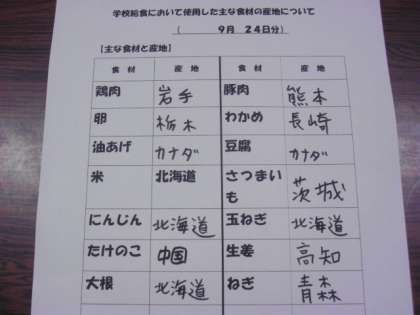 学校給食において使用した主な食材の産地について
( 9月 24日分)
【主な食材と産地】
食材 産地 食材 産地
鶏肉 岩手 豚肉 熊本
卵 栃木 わかめ 長崎
油あげ カナダ 豆腐 カナダ
米 北海道 さつまいも 茨城
にんじん 北海道 玉ねぎ 北海道
たけのこ 中国 生姜 高知
大根 北海道 ねぎ 青森